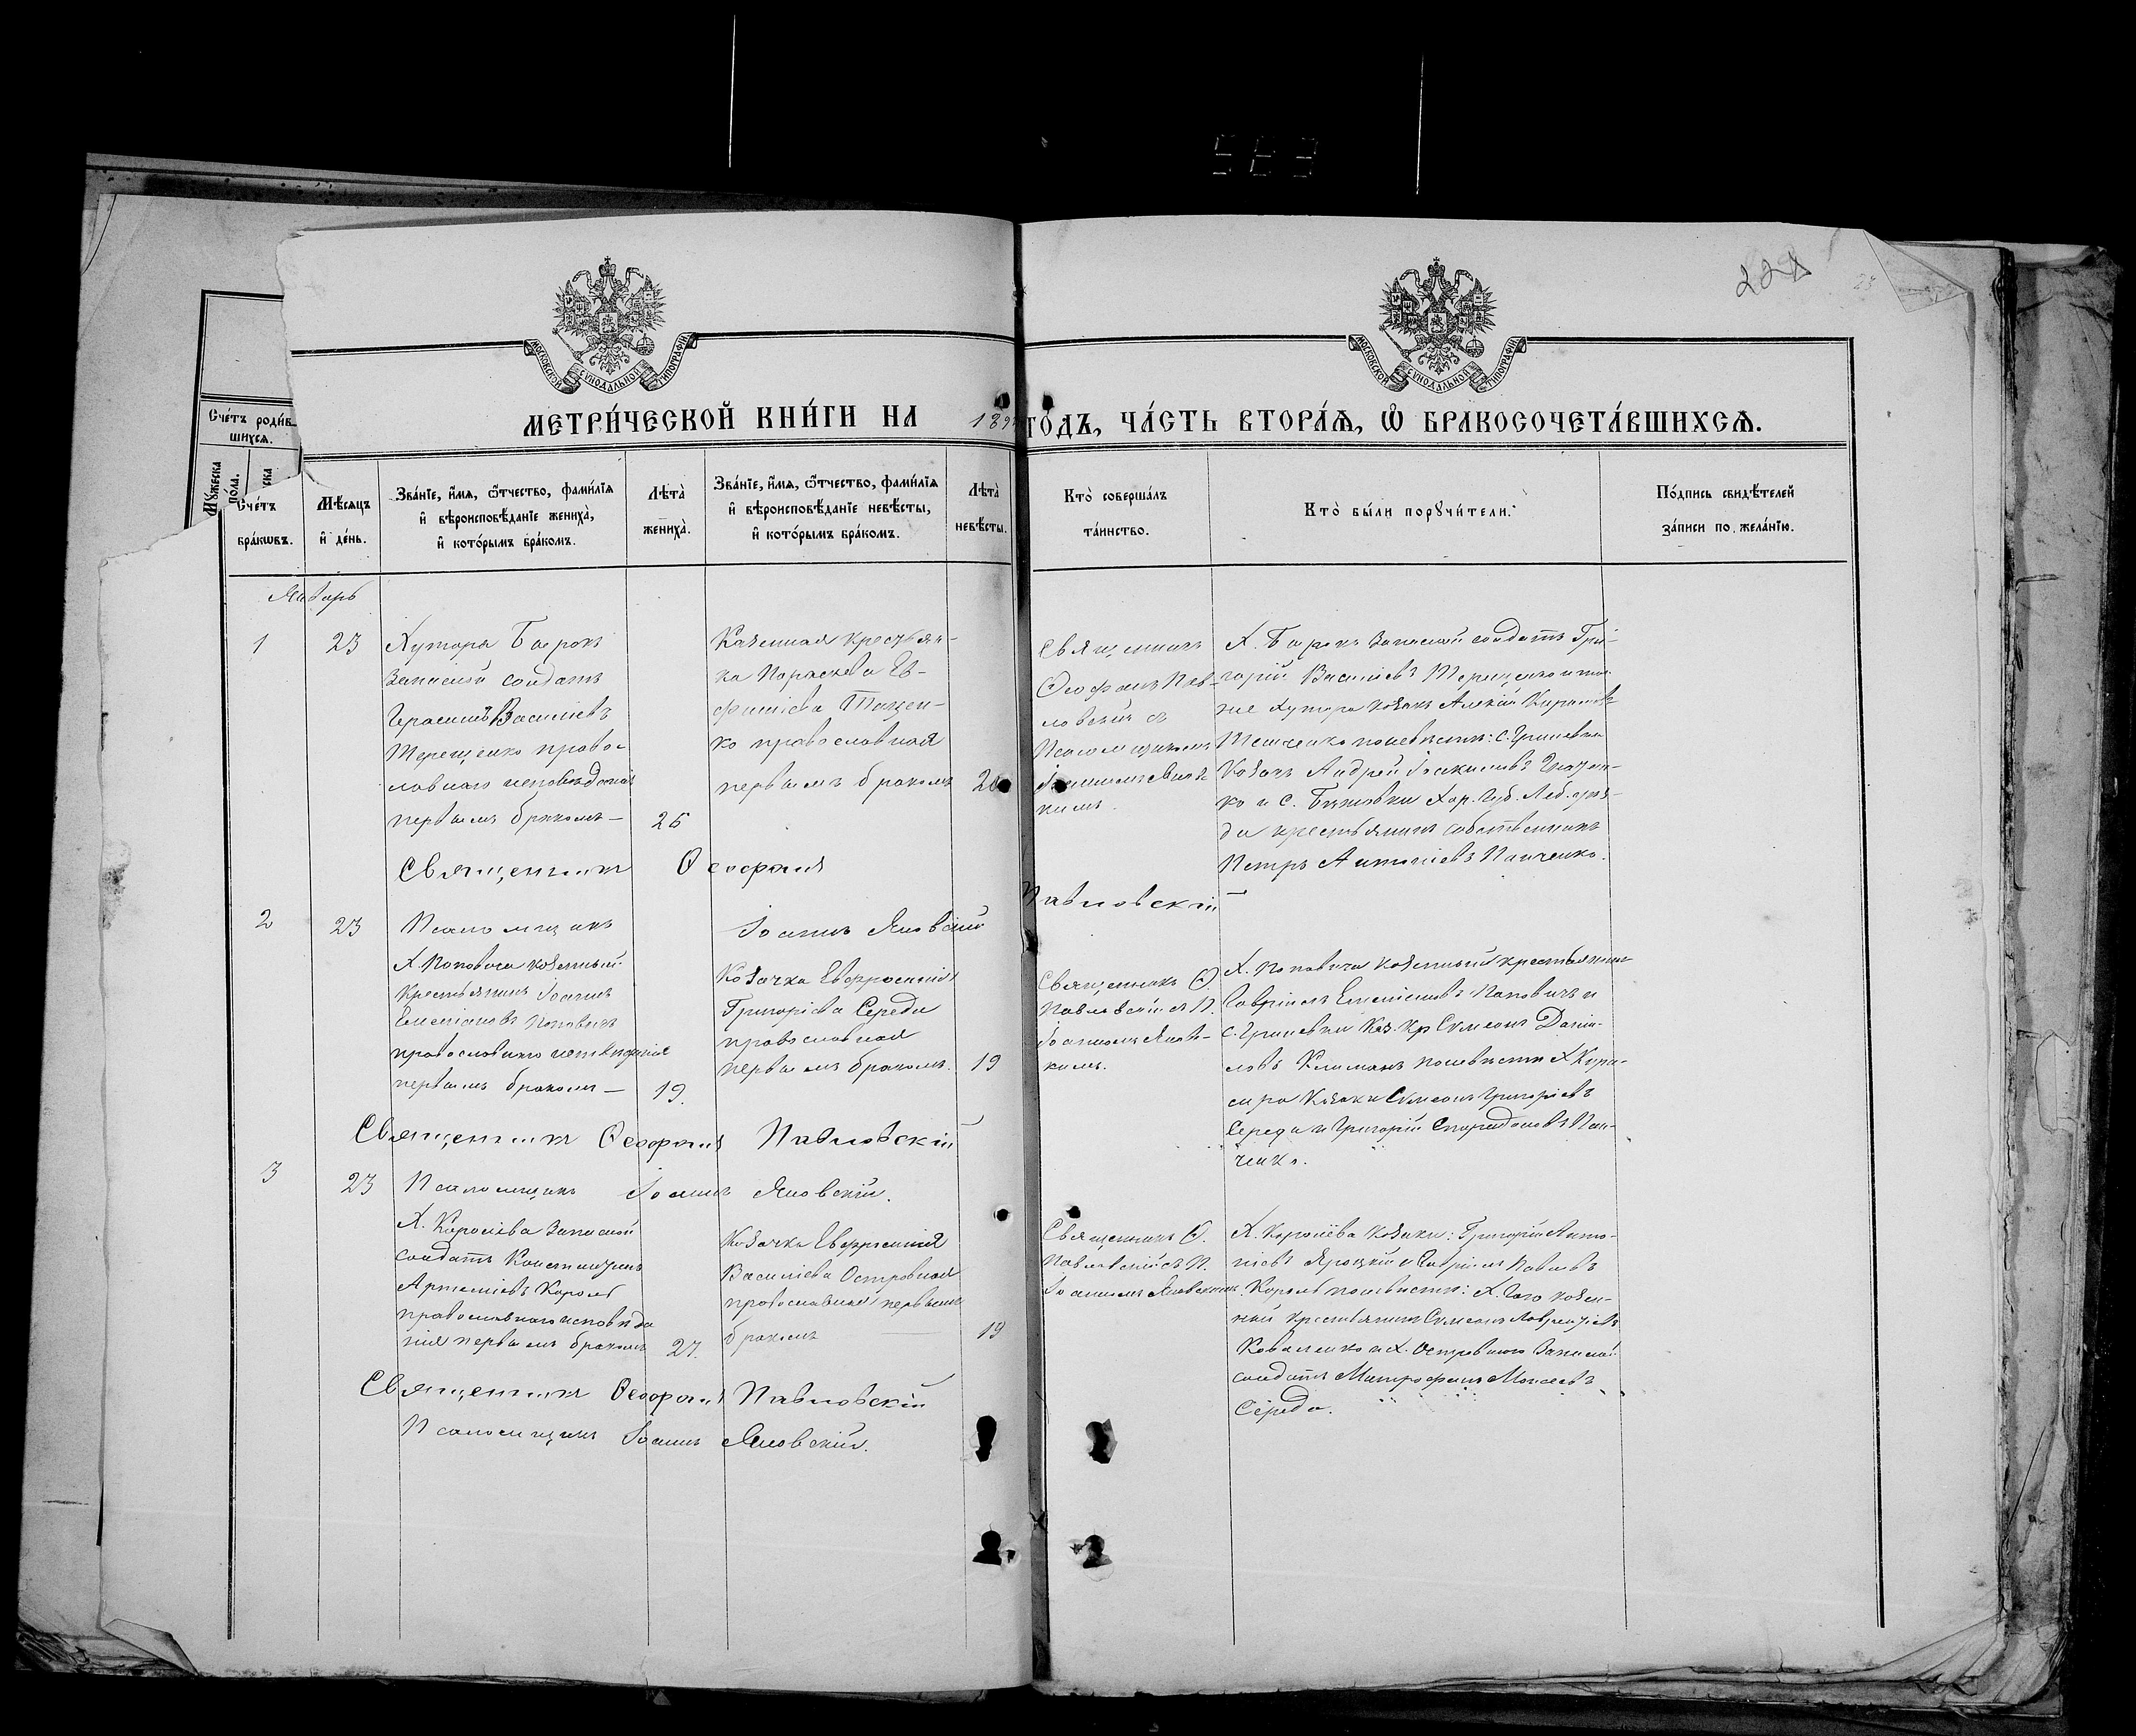 583
228
МОСКОВСКОЙ СУНОДАЛЬНОЙ ТИПОГРАФІИ
МОСКОВСКОЙ СУНОДАЛЬНОЙ ТИПОГРАФІИ
Сче́тъ роди́в-
шихсѧ.
Мꙋ́жеска
по́ла.
ска
МЕТРИ́ЧЕСКОЙ КНИ́ГИ НА 189 ГО́ДЪ, ЧА́СТЬ ВТОРА́Ѧ, Ѽ БРАКОСОЧЕТА́ВШИХСѦ.
Сче́тъ
бра́кѡвъ.
Мѣ́сѧцъ
и҆ де́нь.
Зва́нїе, и҆́мѧ, ѻ҆́тчество, фами́лїѧ
и҆ вѣроисповѣ́данїе жениха̀,
и҆ кото́рымъ бра́комъ.
Лѣ́та̀
жениха̀.
Зва́нїе, и҆́мѧ, ѻ҆́тчество, фами́лїѧ
и҆ вѣроисповѣ́данїе невѣ́сты,
и҆ кото́рымъ бра́комъ.
Лѣ́та̀
невѣ́сты.
Кто̀ соверша́лъ
та́инство.
Кто̀ бы́ли порꙋчи́тели.
По́дпись свидѣ́телей
за́писи по жела́нїю.
Январь
1
23
Хутора Бирокъ
Запасной солдатъ
Герасимъ Васильевъ
Терещенко правос-
лавнаго исповѣданія
первымъ бракомъ —
26
Казенная крестьян-
ка Параскева Ев-
фиміева Тищен-
ко православная
первымъ бракомъ
20
Священникъ
Ѳеофанъ Пав-
ловскій съ
Псаломщикомъ
Іоанномъ Яновс-
кимъ.
Х. Бирокъ Запасной солдатъ Гри-
горій Васильевъ Терещенко и того
же Хутора козакъ Алексій
по невѣсти: с. Гриневки
Козакъ Андрей Іоакимовъ
ко и с. Хар. Губ. Леб. уѣз-
да крестьянинъ собственникъ
Петръ Антоніевъ Панченко.
Священникъ Ѳеофанъ Павловскій
Псаломщикъ Іоаннъ Яновскій
2
23
Х. Поповича казенный
Крестьянинъ Іоаннъ
Емеліановъ Поповичъ
православнаго исповѣданія
первымъ бракомъ —
19.
Козачка Евфросинія
Григоріева Середа
православная
первымъ бракомъ.
19
Священникъ Ѳ.
Павловскій съ П.
Іоанномъ Яновс-
кимъ.
Х. Поповича казенный крестьянинъ
Гавріилъ Емеліановъ Поповичъ и
с. Гриневки Каз. Кр Симеонъ Дани-
ловъ Климанъ по невѣсти Х
Козаки Симеонъ Григоріевъ
Середа и Григорій Спиридоновъ Пан-
ченко.
Священникъ Ѳеофанъ Павловскій
Псаломщикъ Іоаннъ Яновскій.
3
23
Х. Королева Запасной
солдатъ Константинъ
Артеміевъ Король
православнаго исповѣда
нія первымъ бракомъ
27.
Козачка Евфросинія
Василіева Островная
православная первымъ
бракомъ —
19
Священникъ Ѳ.
Павловскій съ П.
Іоанномъ Яновскимъ
Х. Королева Козаки: Григорій Анто-
ніевъ Яроцкій и Гавріилъ Павловъ
Король по невѣсти: Х. казен-
ный крестьянинъ Симеонъ Лаврентіевъ
Коваленко и Х. Островного Запасной
солдатъ Митрофанъ Моисеевъ
Середа.
Священникъ Ѳеофанъ Павловскій
Псаломщикъ Іоаннъ Яновскій.